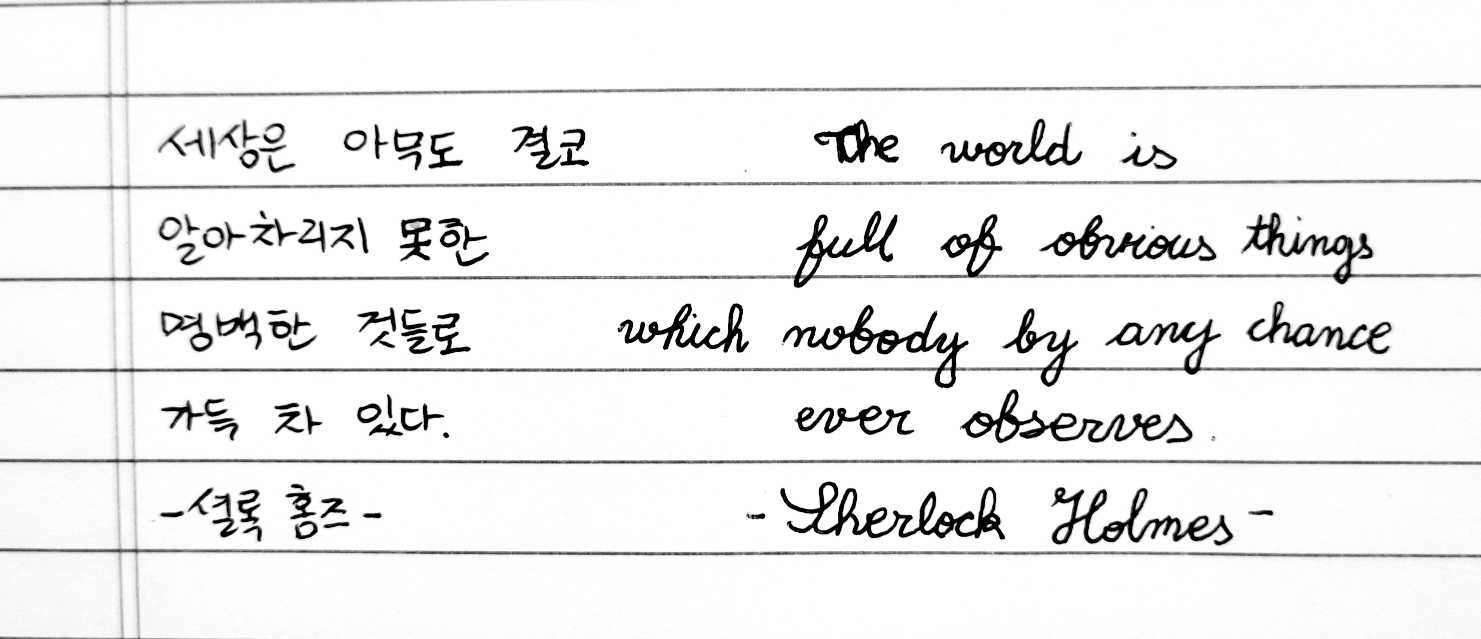 세상은 아무도 결코
알아차리지 못한
명백한 것들로
가득 차 있다.
-셜록 홈즈-
The world is
full of obvious things
which nobody by any chance
ever observes.
- Sherlock Holmes -